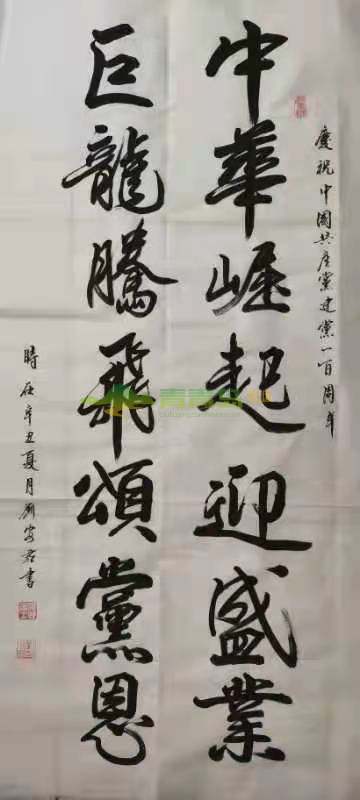 慶祝中國共產黨建黨一百周年
中華崛起迎盛業
巨龍騰飛頌黨恩
時在辛丑夏月劉書